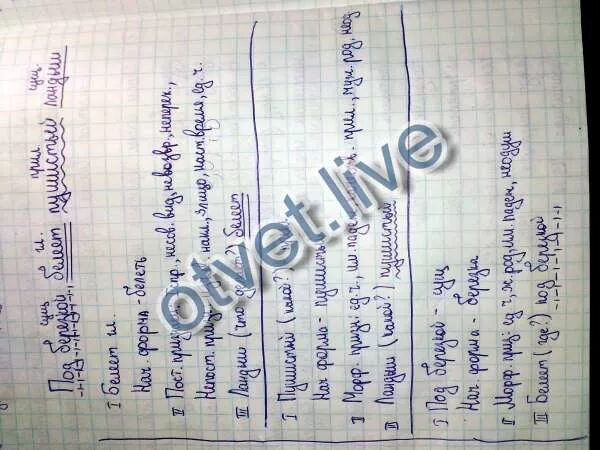 сущ. гл. прил. сущ.
Под берёзкой белеет пушистый ландыш
I Белеет гл.
Нач. форма - белеть
II Пост. спр., несов. вид, невозвр., неперех.,
Непост. накл., 3 лицо, наст. время, ед. ч.
III Ландыш (что белеет
I Пушистый (какой?)
Нач форма - пушистый
II Морф. призн: ед. ч., им. падеж прил., муж. род, неод
III Ландыш (какой?) пушистый
I Под берёзкой - сущ
Нач. форма - берёзка
II Морф. приз: ед ч, ж. род, им. падеж, неодуш
III Белеет (где?) под берёзкой
otvet.live